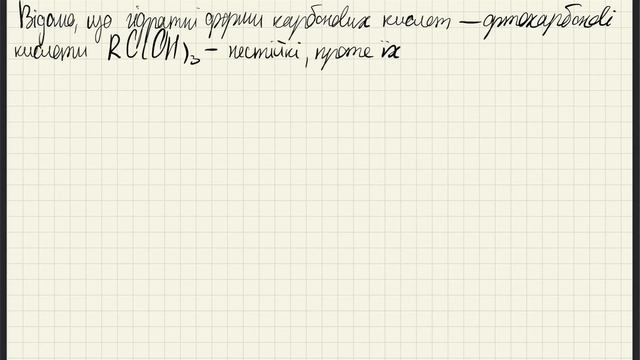 Відомо, що гідратні форми карбонових кислот — ортокарбонові
кислоти RC(OH)₃ – нестійкі, проте їх